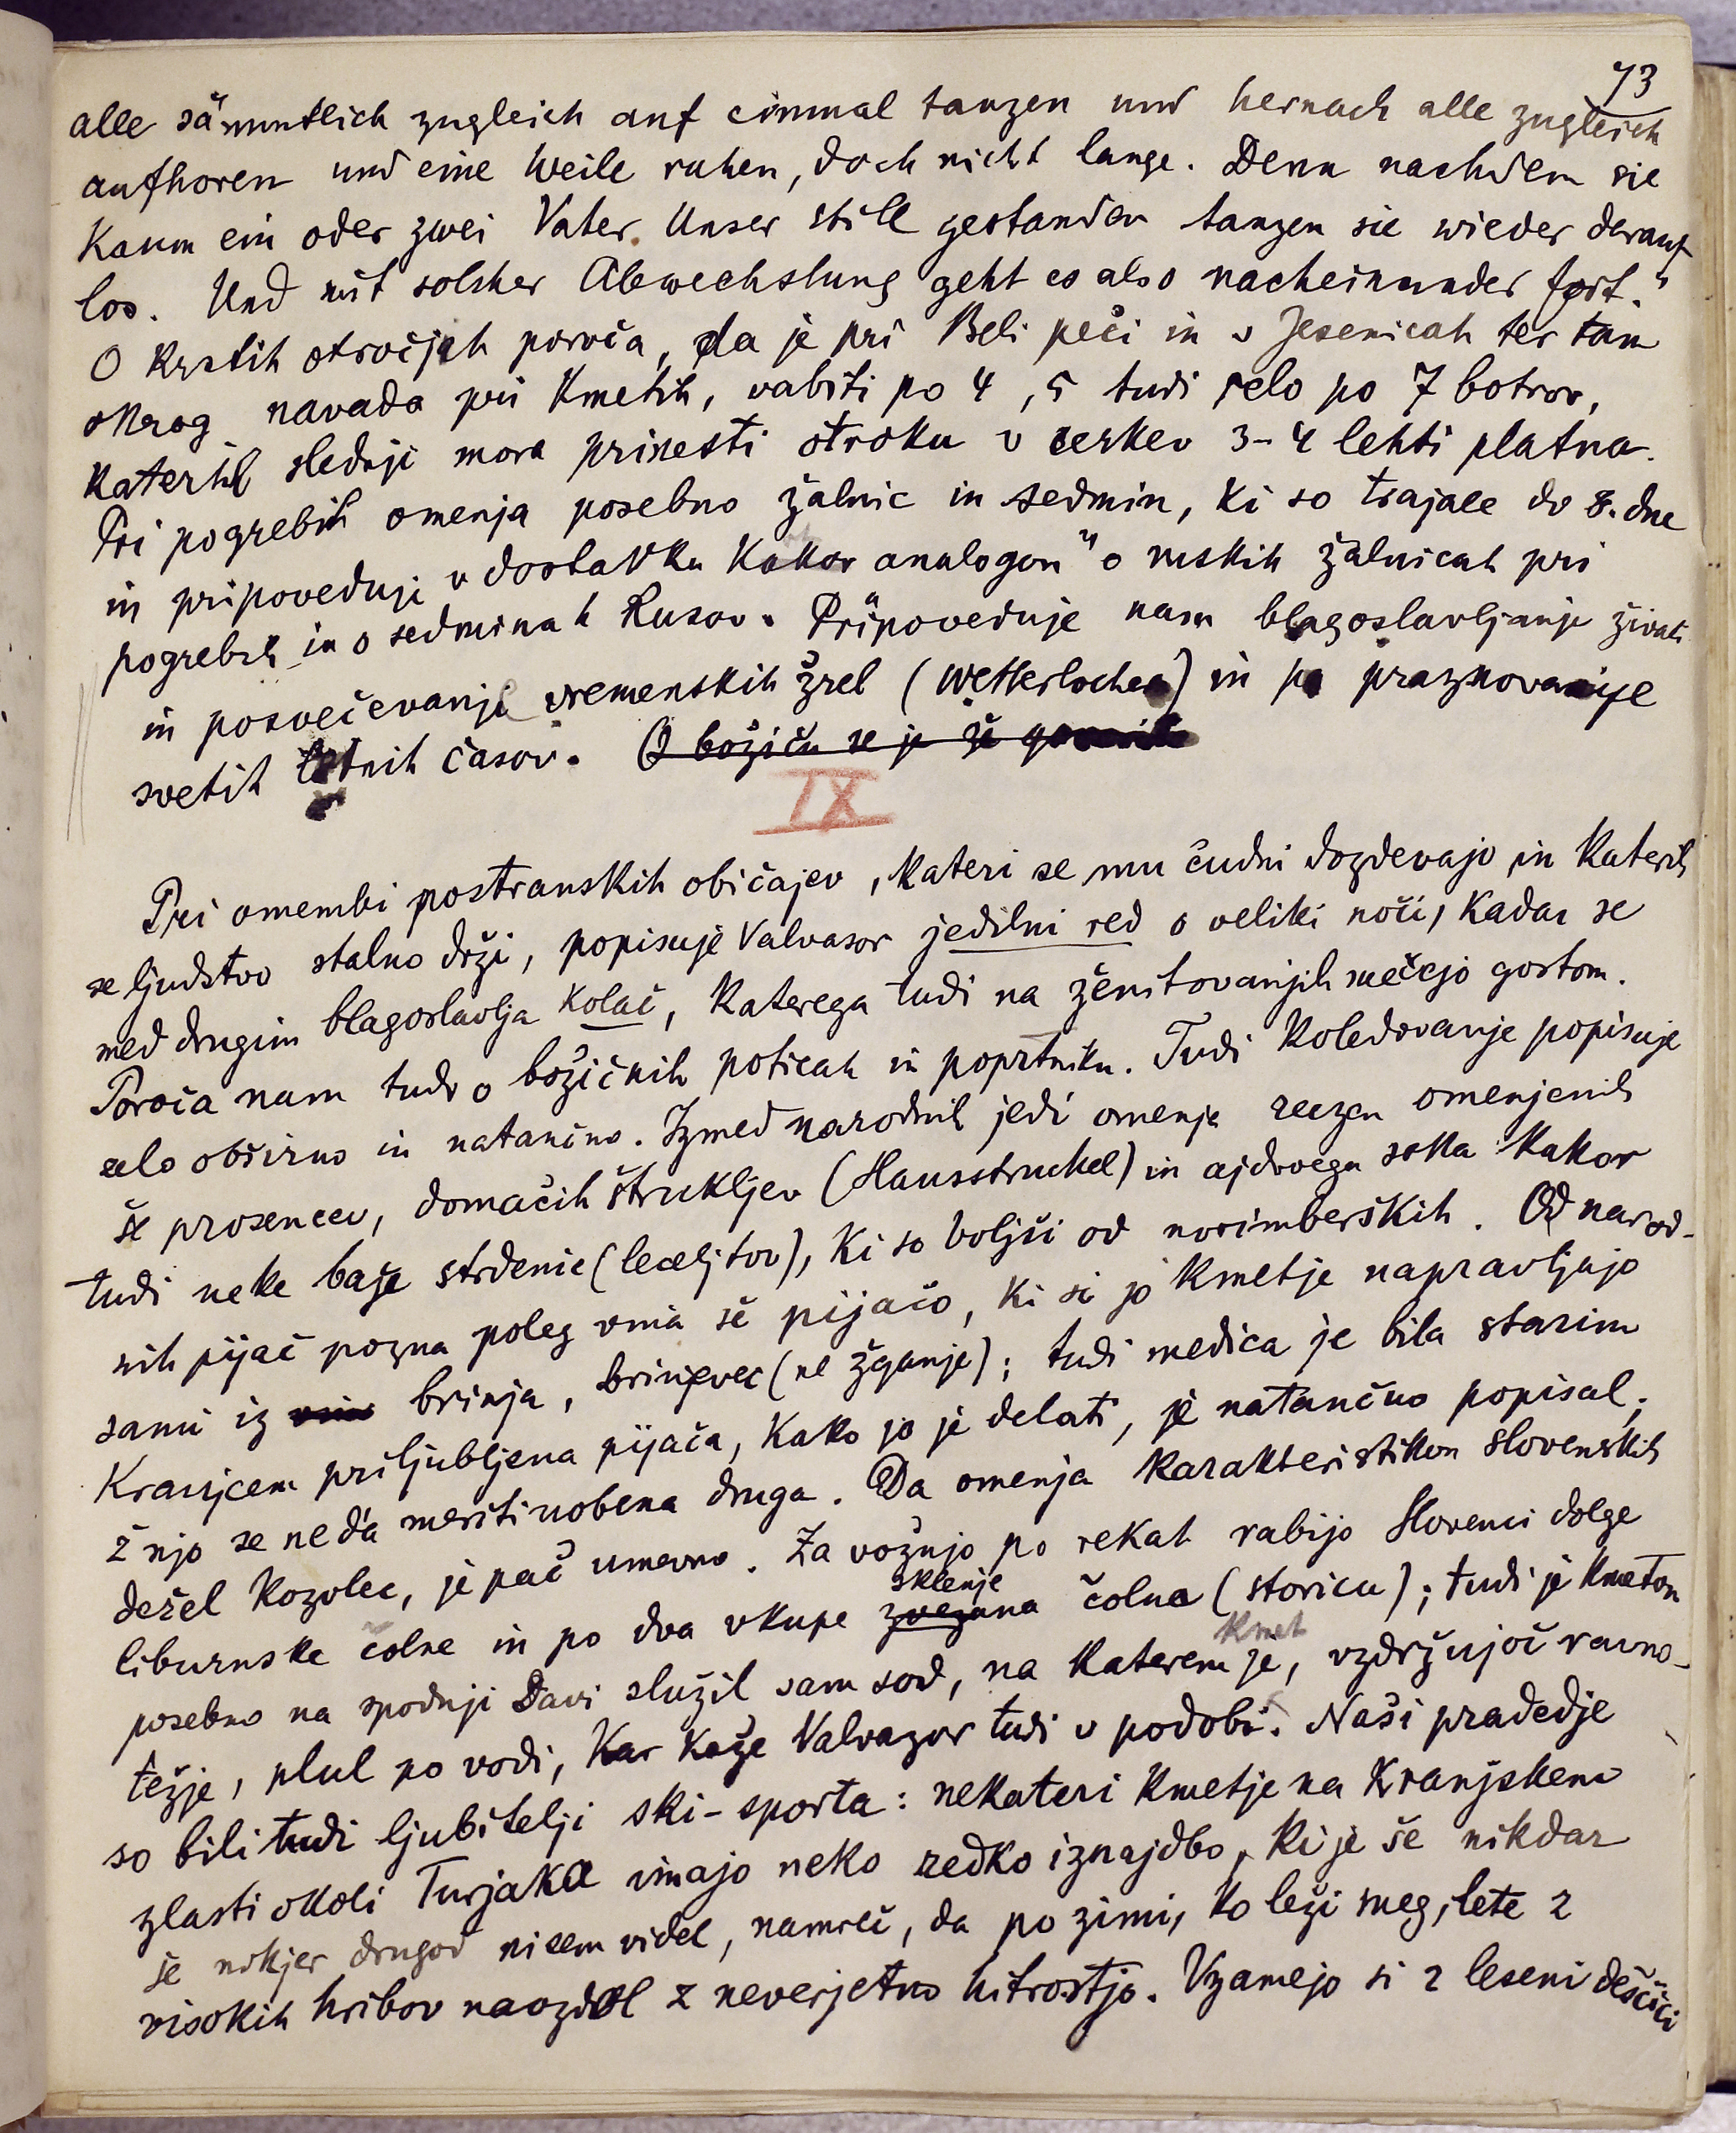 73
alle sämmtlich zugleich auf einmal tanzen und hernach alle zugleich
aufhoren und eine Weile ruhen, doch nicht lange. Denn nachdem sie
kaum ein oder zwei Vater Unser still gestanden tanzen sie wieder darauf
los. Und mit solcher Abwechslung geht es also nacheinander fort."
O krstih otročjih poroča, da je pri Beli peči in v Jesenicah ter tam
okrog navada pri kmetih, vabiti po 4, 5 tudi celo po 7 botrov,
katerih slednji mora prinesti otroku v cerkev 3-4 lehti platna.
Pri pogrebih omenja posebno žalnic in sedmin, ki so trajale do 8. dne
in pripoveduje v dostavku kakor analogon" o ruskih žalnicah pri
pogrebih in o sedminah Rusov. Pripoveduje nam blagoslavljanje živali
in posvečevanje vremenskih žrel (Wetterlöcher) in pa praznovanje
svetih letnih časov. O božiču se je že govorilo
IX
Pri omembi postranskih običajev, kateri se mu čudni dozdevajo in katerih
se ljudstvo stalno drži, popisuje Valvasor jedilni red o veliki noči, kadar se
med drugim blagoslavlja kolač, katerega tudi na ženitovanjih mečejo gostom.
Poroča nam tudi o božičnih poticah in poprtniku. Tudi koledovanje popisuje
zelo obširno in natančno. Izmed narodnih jedi omenja razen omenjenih
še prosencev, domačih štrukljev (Hausstruckel) in ajdovega soka kakor
tudi neke baže strdenic (leceljtov), ki so boljši od norimberških. Od narod-
nih pijač pozna poleg vina še pijačo, ki si jo kmetje napravljajo
sami iz vina brinja, brinjevec (ne žganje); tudi medica je bila starim
Kranjcem priljubljena pijača, kako jo je delati, je natančno popisal;
ž njo se ne da meriti nobena druga. Da omenja karakteristikon slovenskih
dežel kozolec, je pač umevno. Za vožnjo po rekah rabijo Slovenci dolge
liburnske čolne in po dva vkupe zvezana sklenje čolna (storicu); tudi je kmetom
posebno na spodnji Savi služil sam sod, na katerem je kmet, vzdržujoč ravno-
težje, plul po vodi, kar kaže Valvazor tudi v podobi. Naši pradedje
so bili tudi ljubitelji ski-sporta: nekateri kmetje na Kranjskem
zlasti okoli Turjaka imajo neko redko iznajdbo, ki je še nikdar
še nikjer drugod nisem videl, namreč, da po zimi, ko leži sneg, lete z
visokih hribov naozdol z neverjetno hitrostjo. Vzamejo si 2 leseni deščici